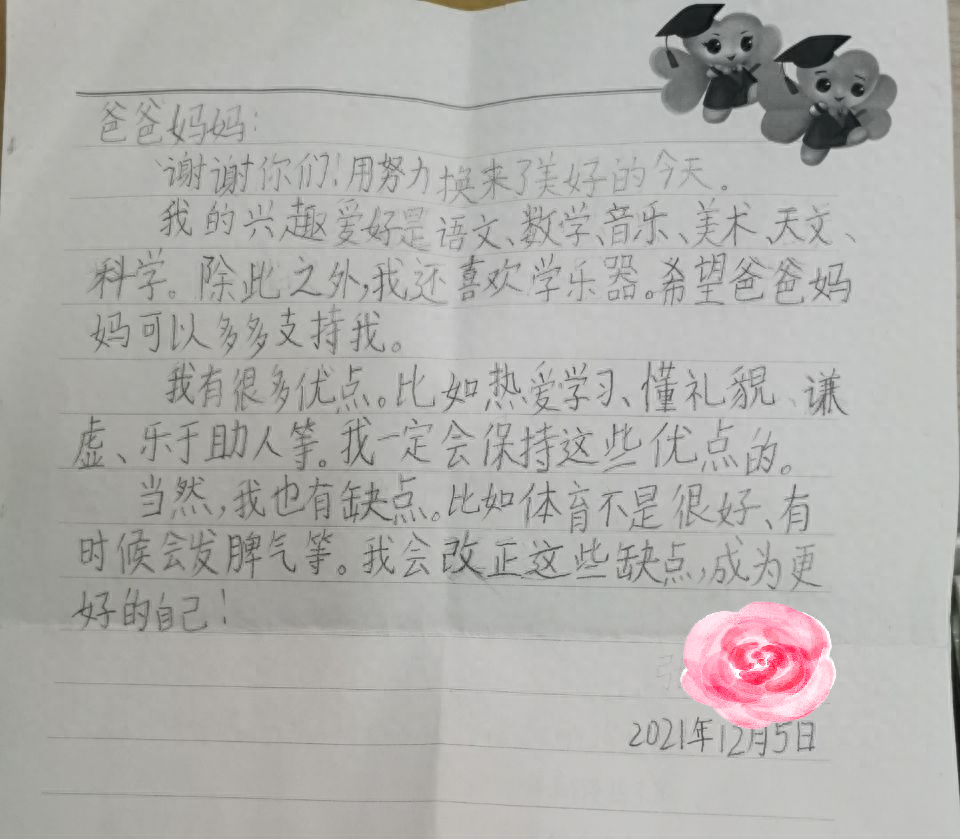 爸爸妈妈：
谢谢你们！用努力换来了美好的今天。
我的兴趣爱好是语文、数学、音乐、美术、天文、
科学。除此之外，我还喜欢学乐器。希望爸爸妈
妈可以多多支持我。
我有很多优点。比如热爱学习、懂礼貌、谦
虚、乐于助人等。我一定会保持这些优点的。
当然，我也有缺点。比如体育不是很好、有
时候会发脾气等。我会改正这些缺点，成为更
好的自己！
2021年12月5日